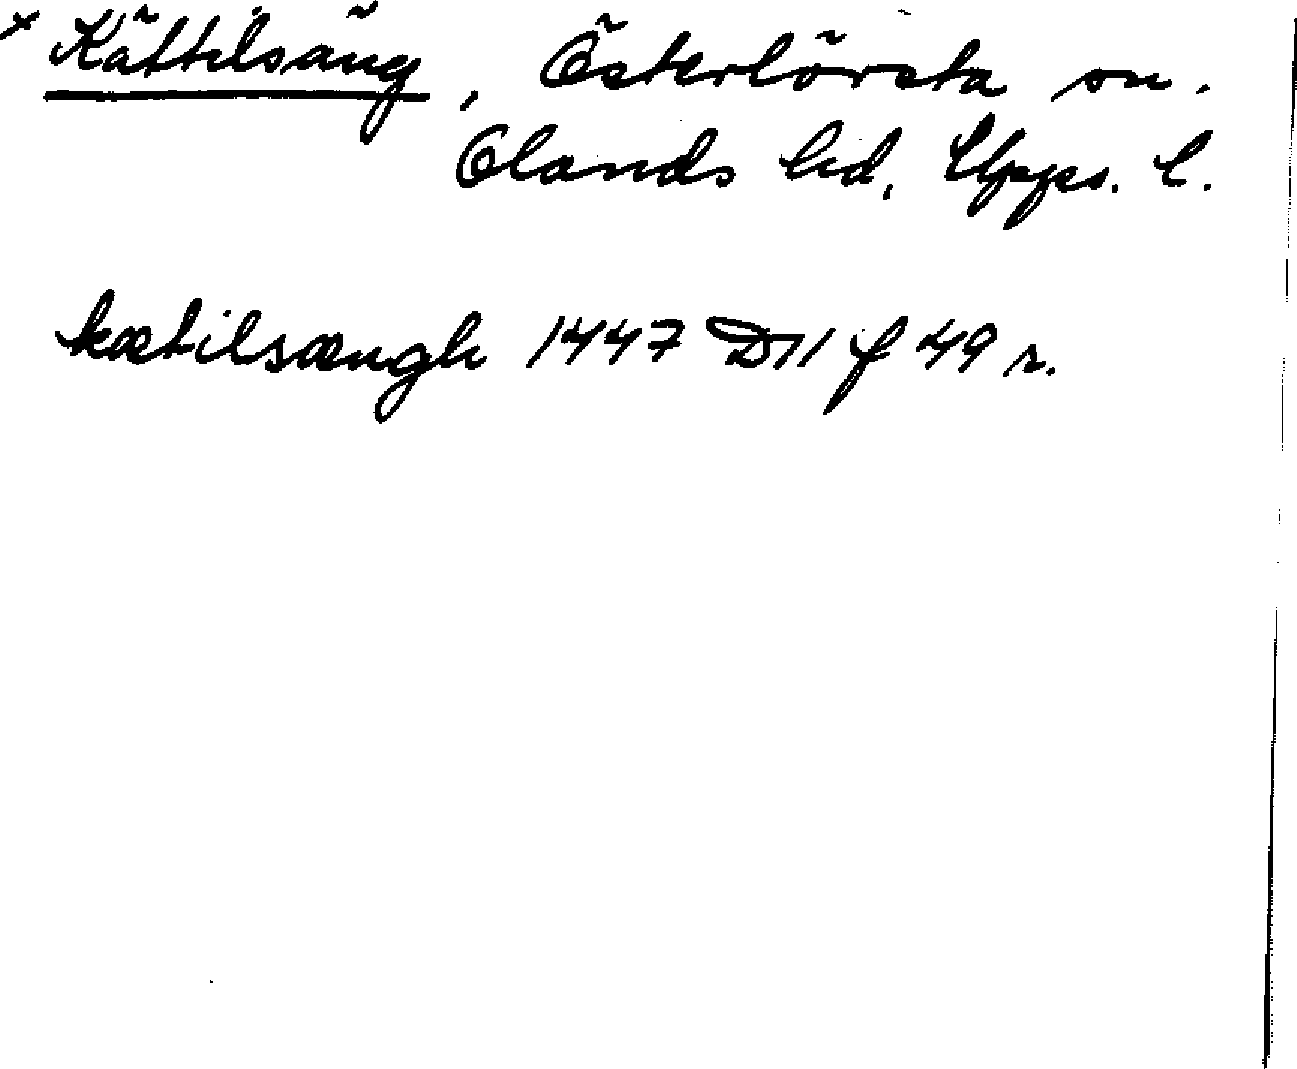 × Kättilsäng, Österlövsta sn.
Olands hd, Upps. l.
kætilsængh 1447 D11 f 49 r.